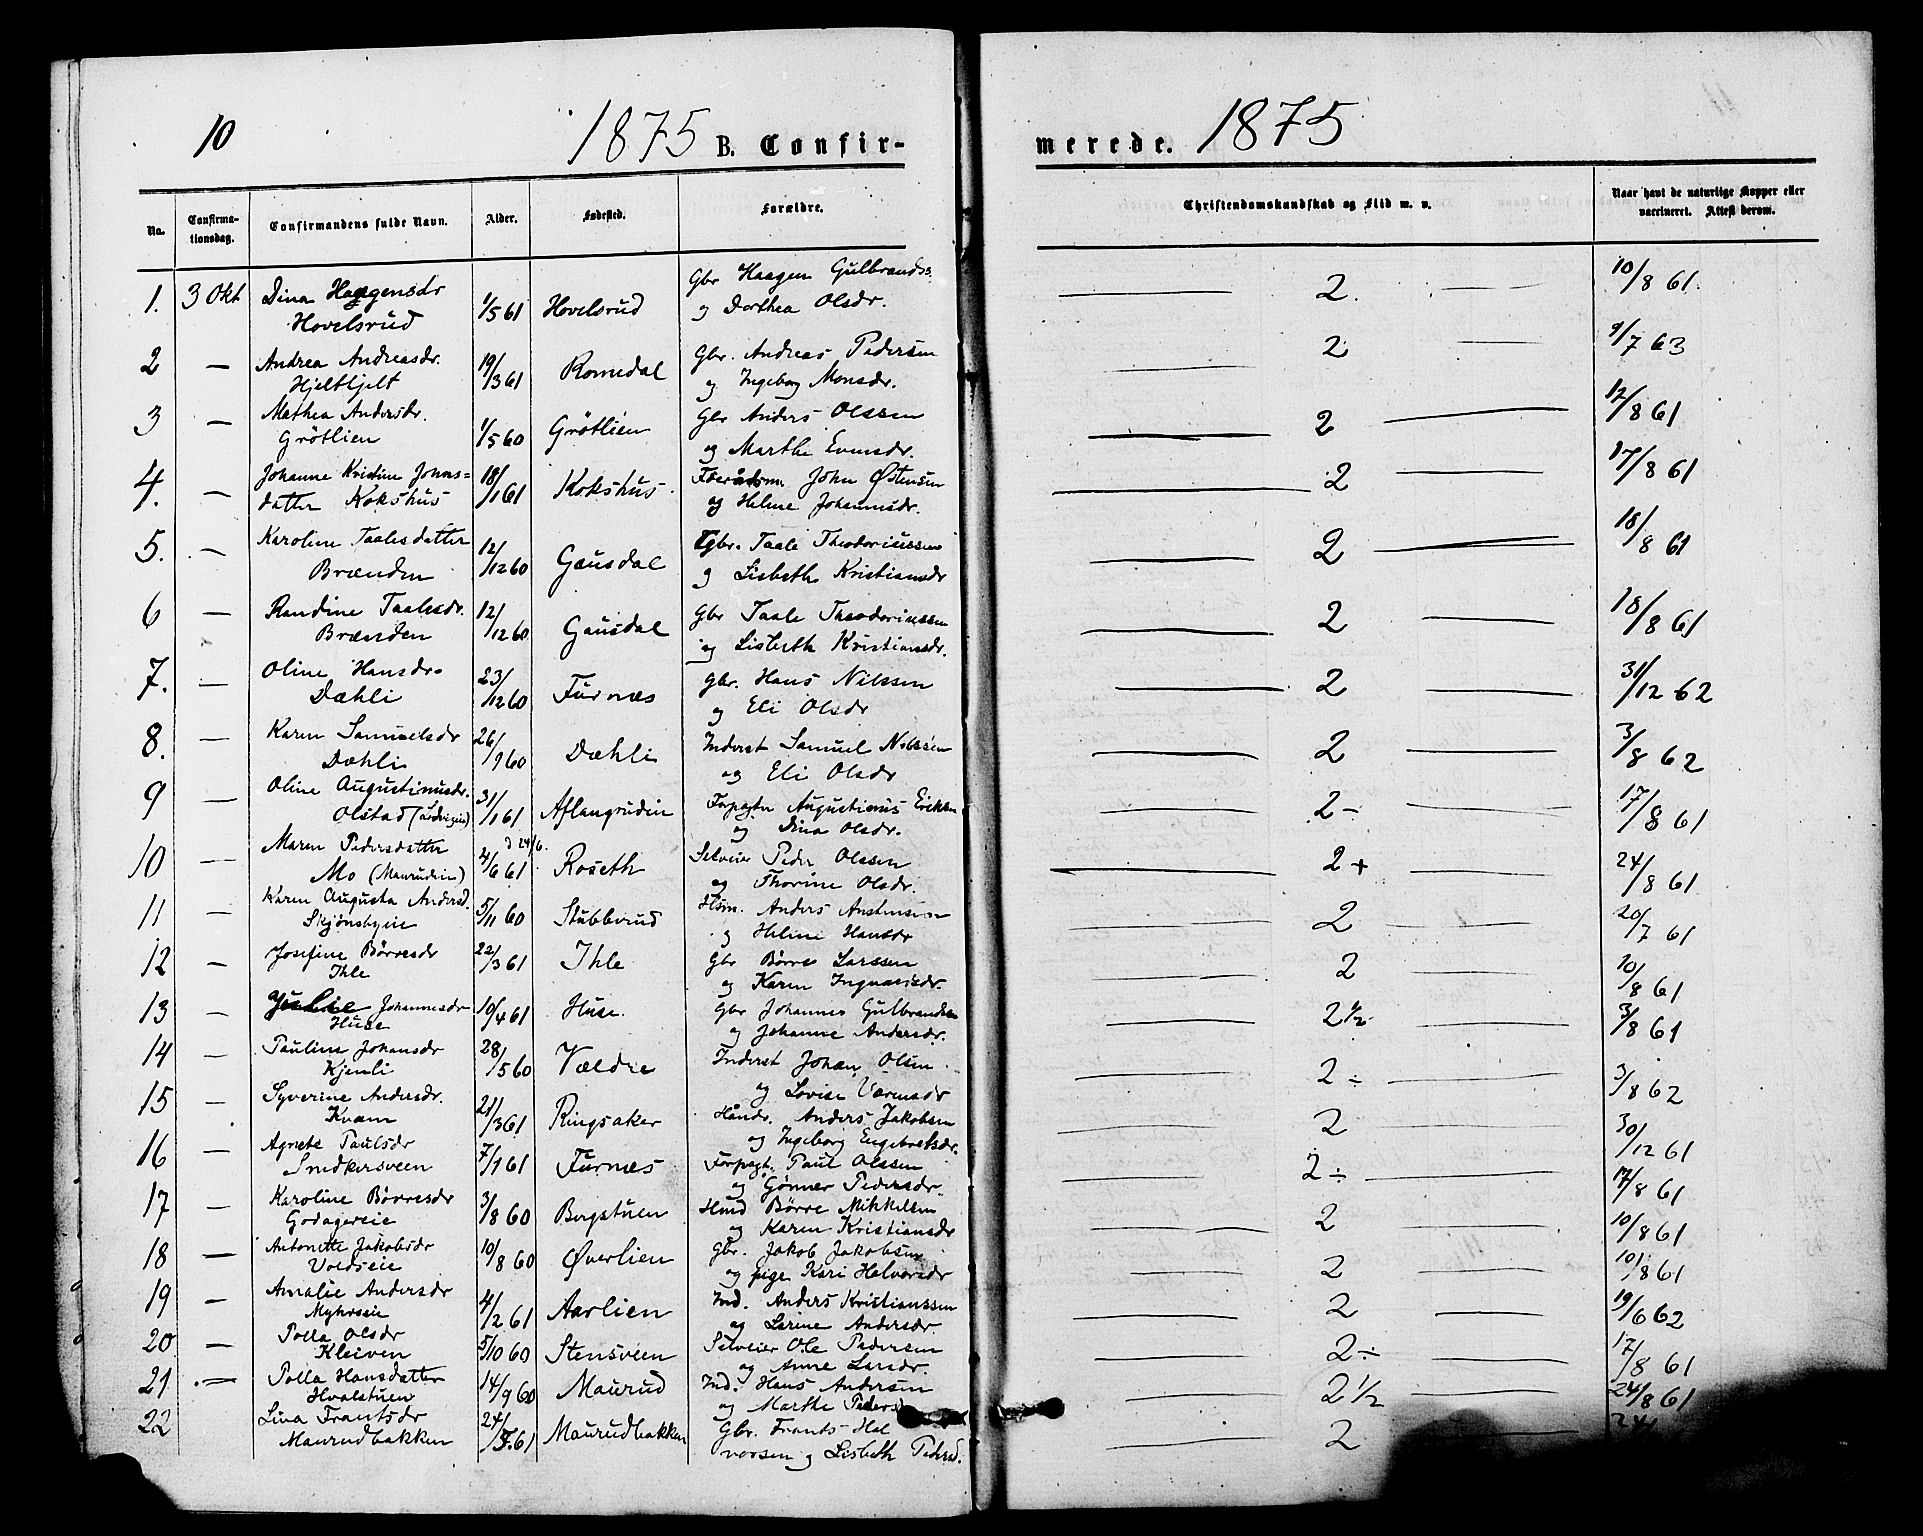 10
1875 B. Confir-
merede. 1875
No.
Confirma-
tionsdag.
Confirmandens fulde Navn.
Alder.
Fødested.
Forældre.
Christendomskundskab og Flid m. v.
Naar havt de naturlige Kopper eller
vaccineret. Attest derom.
1. 3 Okt Dina Haagensdr 1/5 61 Hovelsrud Gbr Haagen Gulbrands. 2. 10/8 61.
Hovelsrud og Dorthea Olsdr.
2 — Andrea Andreasdr. 19/3 61 Romedal Gbr. Andreas Pedersen 2 9/7 63
Hjelthjelt og Ingeborg Monsdr.
3 — Mathea Andersdr. 1/5 60 Grötlien Gbr Anders Olssen 2 12/8 61
Grötlien og Marthe Evensdr.
4. — Johanne Kristine Johns= 18/1 61 Kokshus John Østensen 2 17/8 61
datter Kokshus og Helene Johannesdr.
5. — Karoline Taalesdatter 12/12 60 Gausdal Gbr. Taale Theodoriussen 2 18/8 61
Brænden og Lisbeth Kristiansdr
6 — Randine Taalesdr. 12/12 60 Gausdal Gbr Taale Theodoriussen 2 18/8 61
Brænden og Lisbeth Kristiansdr.
7. — Oline Hansdr. 23/12 60 Furnæs Gbr. Hans Nilssen 2 31/12 62
Dæhli og Eli Olsdr
8. — Karen Samuelsdr 26/9 60 Dæhli Inderst Samuel Nilssen 2 3/8 62
Dæhli og Eli Olsdr
9 — Oline Augustinusdr. 31/1 61 Aflangrudin Forpagter Augustinus Eriksen 2- 17/8 61
Olstad og Dina Olsdr.
10 — Maren Pedersdatter 4/6 61 d 24/6. Roseth Selveier Peder Olssen 2+ 24/8 61
Mo (Maurudein) og Thorine Olsdr.
11 — Karen Augusta Andersd. 5/11 60 Stubberud Hsm. Anders Anstensen 2 20/7 61
Skjönsbyeie og Heline Hansdr
12 — Josefine Börresdr 22/3 61 Ihle Gbr Börre Larssen 2 10/8 61
Ihle og Karen Ingvaldsdr.
13 — Julie Johannesdr 10/4 61 Huse. Gbr Johannes Gulbrandsen 2 1/2 3/8 61
Huse og Johanne Andersdr.
14 — Pauline Johansdr 28/5 60 Vældre Inderst Johan Olsen 2÷ 3/8 62
Kjemli og Lovise
15 — Syverine Andersdr. 21/3 61 Ringsaker Anders Jakobsen 2 30/12 61
Kvam og Ingeborg Engebretsdr.
16 — Agnete Paulsdr 7/1 61 Furnæs Forpagt. Paul Olssen 2÷ 17/8 61
Smedkersveen og Gönner Pedersdr.
17 — Karoline Börresdr 3/8 60 Bergstuen Hsmd Börre Mikkelsen 2 10/8 61
Godagereie og Karen Kristiansdr
18 — Antonette Jakobsdr 10/8 60 Øverlien Gbr. Jakob Jakobsen 2 10/8 61
Voldseie og pige Kari Halvorsdr
19 — Amalie Andersdr 4/2 61 Aarlien Ind. Anders Kristianssen 2 19/6 62
Myhrseie og Larine Andersdr.
20 — Polla Olsdr 5/10 60 Stensveen Selveier Ole Pedersen 2÷ 17/8 61
Kleiven og Anne Larsdr.
21 — Polla Hansdatter 14/9 60 Maurud Ind. Hans Andersen 2 1/2 24/8 61
Hvalstuen og Marthe Peders
22 Lina Frantsdr 24/5. 61 Maurudbakken Gbr. Frants Hal 2 24/
Maurudbakken vorsen og Lisbeth Pedersd.